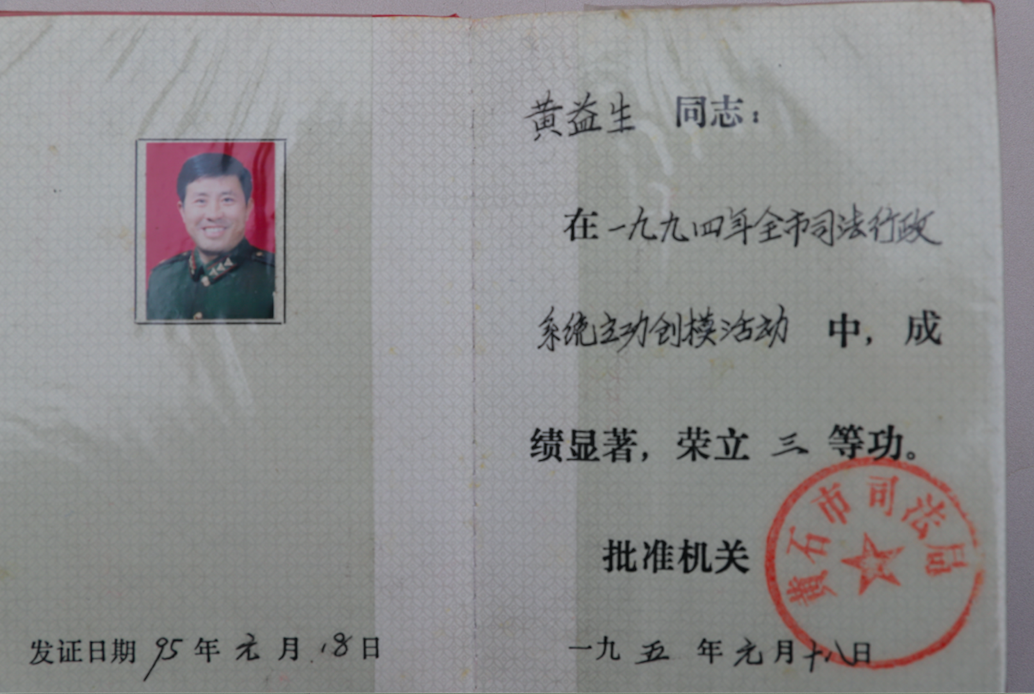 黄益生 同志：
在一九九四年全市司法行政
系统立功创模活动 中，成
绩显著，荣立 三 等功。
批准机关
黄石市司法局
一九 五 年 元 月 十八 日
发证日期 95 年 元 月 18 日